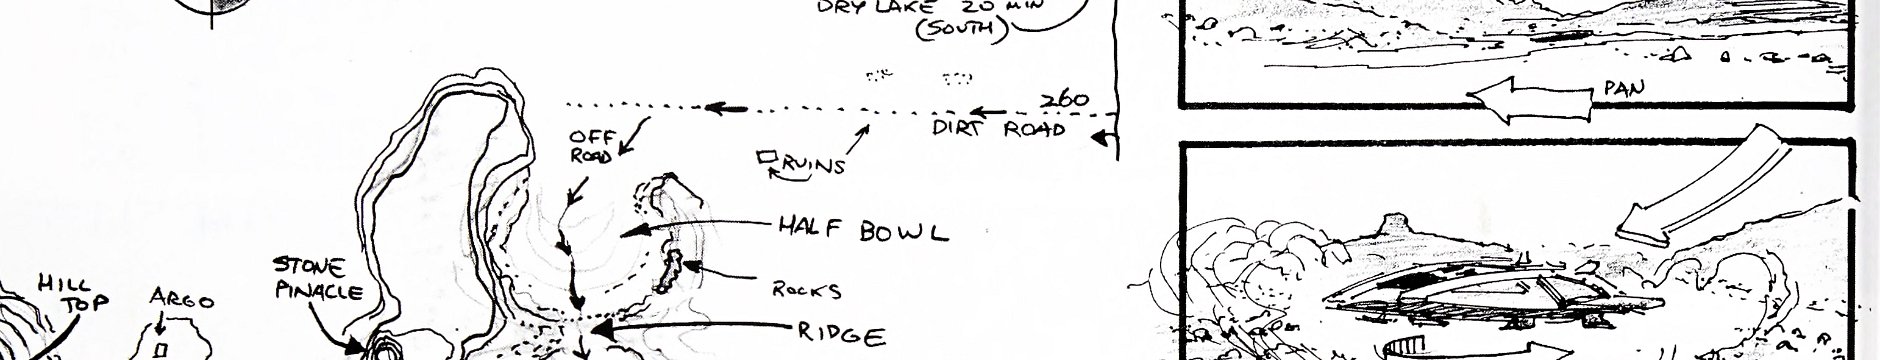 DRY LAKE 20 MIN
(SOUTH)
PAN
260
DIRT ROAD
OFF
ROAD
RUINS
HALF BOWL
STONE
PINACLE
HILL
TOP
ARGO
ROCKS
RIDGE